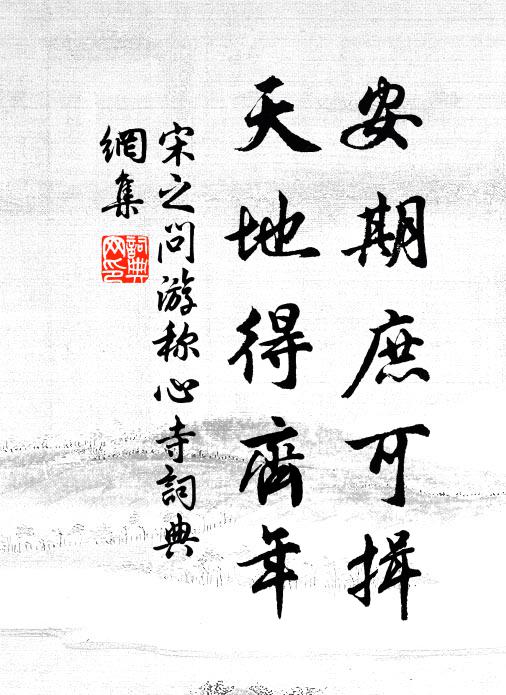 安期庶可揖
天地得齊年
宋之问游称心寺詞典
網集
詞典
网印